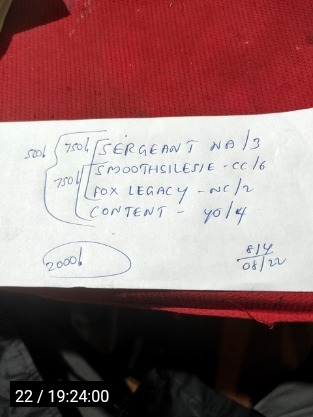 500/- 750/- SERGEANT NA/3
SMOOTHSILESIE - CC/6
750/- FOX LEGACY - NC/2
CONTENT - YO/4
2000/-
8/4
08/22
22 / 19:24:00